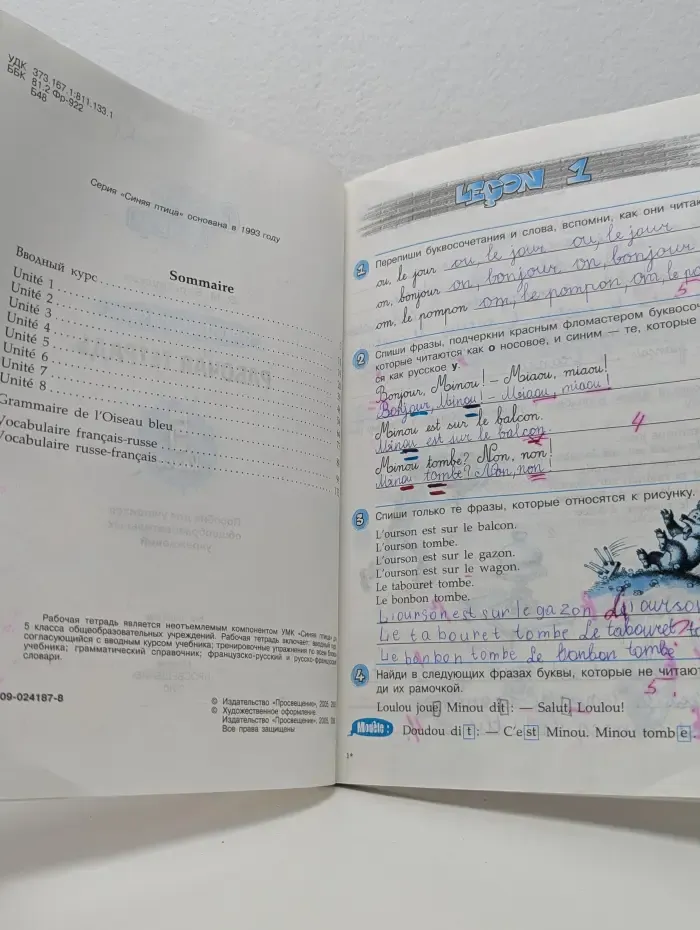 УДК 373.167.1:811.133.1
ББК 81.2 Фр-922
Б48
Серия «Синяя птица» основана в 1993 году
Sommaire
Вводный курс
Unité 1
Unité 2
Unité 3
Unité 4
Unité 5
Unité 6
Unité 7
Unité 8
Grammaire de l'Oiseau bleu
Vocabulaire français-russe
Vocabulaire russe-français
Рабочая тетрадь является неотъемлемым компонентом УМК «Синяя птица»
5 класса общеобразовательных учреждений. Рабочая тетрадь включает: вводный
согласующийся с вводным курсом учебника; тренировочные упражнения по всем
учебника; грамматический справочник; французско-русский и русско-французский
словари.
09-024187-8
© Издательство «Просвещение», 2005
© Художественное оформление.
Издательство «Просвещение», 2005
Все права защищены
LEÇON 1
1 Перепиши буквосочетания и слова, вспомни, как они
ou, le jour ou, le jour ou, le jour
on, bonjour on, bonjour on, bonjour
om, le pompon om, le pompon, om, le
5
2 Спиши фразы, подчеркни красным фломастером
которые читаются как о носовое, и синим — те, которые
ся как русское у.
Bonjour, Minou! – Miaou, miaou!
Bonjour, Minou! – Miaou, miaou!
Minou est sur le balcon.
Minou est sur le balcon.
4
Minou tombe? Non, non!
Minou tombe? Non, non!
3 Спиши только те фразы, которые относятся к рисунку.
L'ourson est sur le balcon.
L'ourson tombe.
L'ourson est sur le gazon.
L'ourson est sur le wagon.
Le tabouret tombe.
Le bonbon tombe.
L'ourson est sur le gazon
Le tabouret tombe Le tabouret
Le bonbon tombe Le bonbon tombe
4 Найди в следующих фразах буквы, которые не
ди их рамочкой.
5
Loulou joue Minou dit: — Salut, Loulou!
Modèle: Doudou dit: — C'est Minou. Minou tombe.
1*